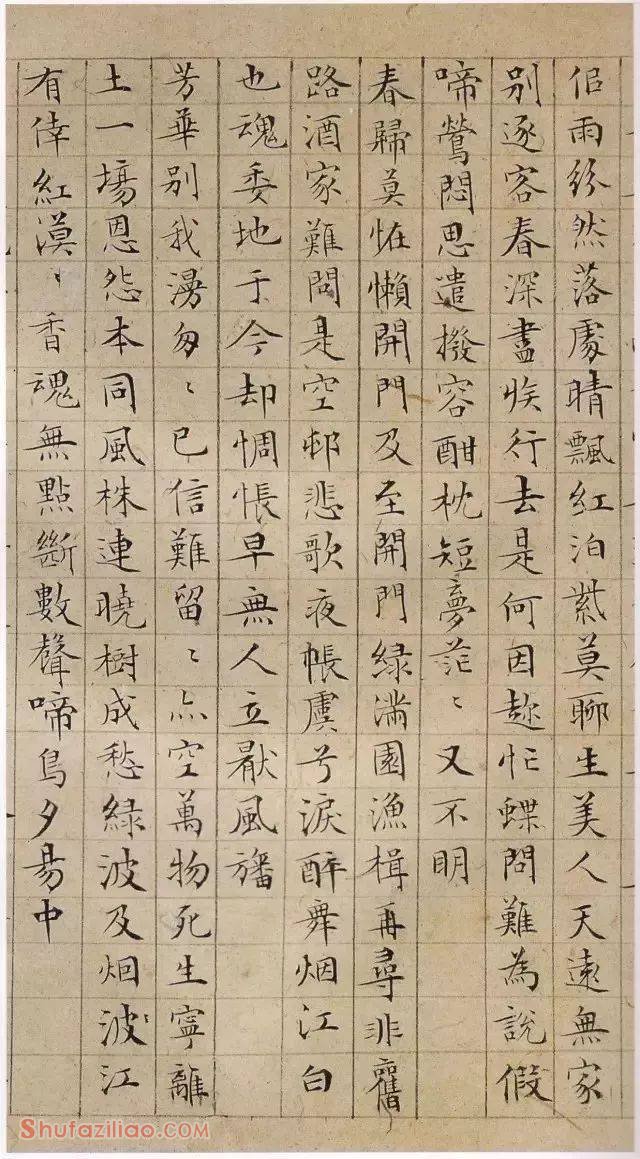 佀雨紛然落處晴飄紅泊紫莫聊生美人天遠無家
别逐客春深盡族行去是何因趂忙蝶問難為說假
啼鶯悶思遣撥容酣枕短夢茫〻又不明
春歸莫怪懶開門及至開門緑滿園漁楫再尋非舊
路酒家難問是空邨悲歌夜帳虞兮淚醉舞烟江白
也魂委地于今却惆悵早無人立厭風旛
芳華别我漫匆〻已信難留〻亦空萬物死生寧離
土一塲恩怨本同風株連曉樹成愁緑波及烟波江
有倖紅漠〻香魂無點斷數聲啼鳥夕昜中
Shufaziliao.com